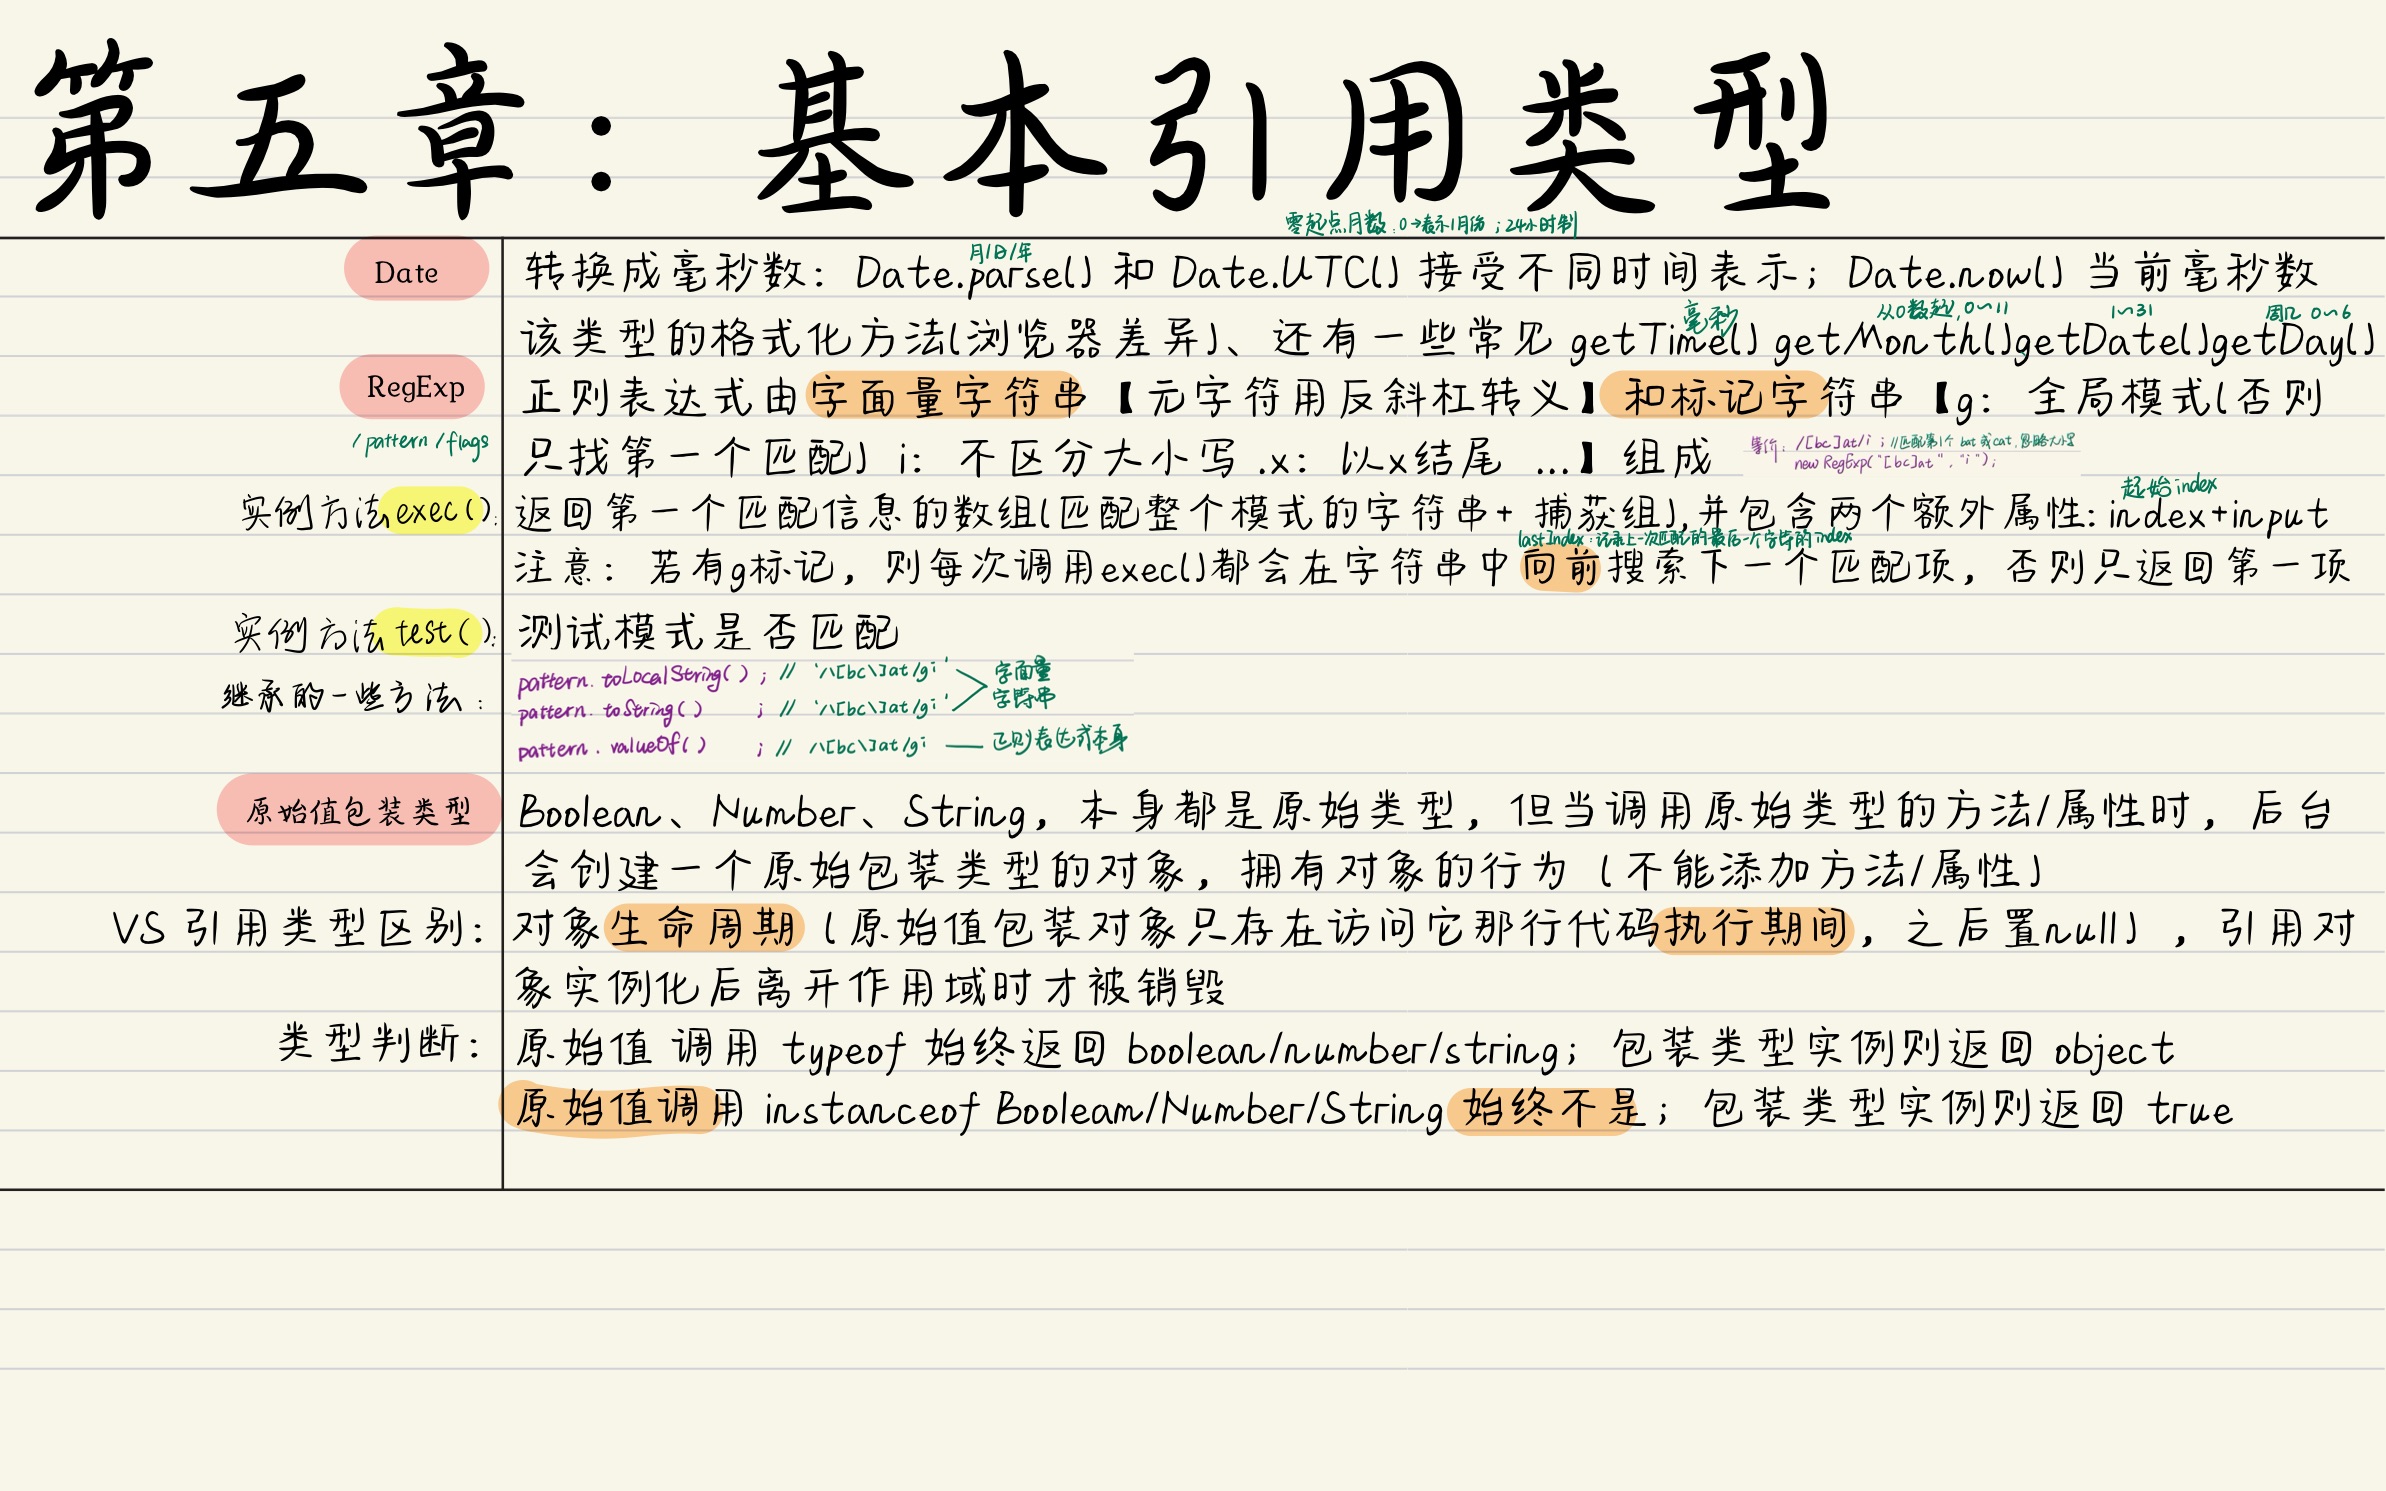 第五章：基本引用类型
零起点月数：0→表示1月份；24小时制
Date
月/日/年
转换成毫秒数：Date.parse() 和 Date.UTC() 接受不同时间表示；Date.now() 当前毫秒数
毫秒 从0数起，0~11 1~31 周几 0~6
该类型的格式化方法(浏览器差异)、还有一些常见 getTime() getMonth()getDate()getDay()
RegExp
正则表达式由字面量字符串【元字符用反斜杠转义】和标记字符串【g：全局模式(否则
/pattern/flags
只找第一个匹配) i：不区分大小写 .x：以x结尾 ...】组成
等价：/[bc]at/i；//匹配第1个bat或cat，忽略大小写
new RegExp("[bc]at", "i");
起始index
实例方法exec()：
返回第一个匹配信息的数组(匹配整个模式的字符串+ 捕获组),并包含两个额外属性：index+input
lastIndex：记录上一次匹配的最后一个字符的index
注意：若有g标记，则每次调用exec()都会在字符串中向前搜索下一个匹配项，否则只返回第一项
实例方法test()：
测试模式是否匹配
继承的一些方法：
pattern.toLocalString(); // '/\[bc\]at/gi'
pattern.toString() ; // '/\[bc\]at/gi'
字面量
字符串
pattern.valueOf() ; // /\[bc\]at/gi —— 正则表达式本身
原始值包装类型
Boolean、Number、String，本身都是原始类型，但当调用原始类型的方法/属性时，后台
会创建一个原始包装类型的对象，拥有对象的行为（不能添加方法/属性）
VS 引用类型区别：
对象生命周期（原始值包装对象只存在访问它那行代码执行期间，之后置null），引用对
象实例化后离开作用域时才被销毁
类型判断：
原始值 调用 typeof 始终返回 boolean/number/string；包装类型实例则返回 object
原始值调用 instanceof Booleam/Number/String 始终不是；包装类型实例则返回 true